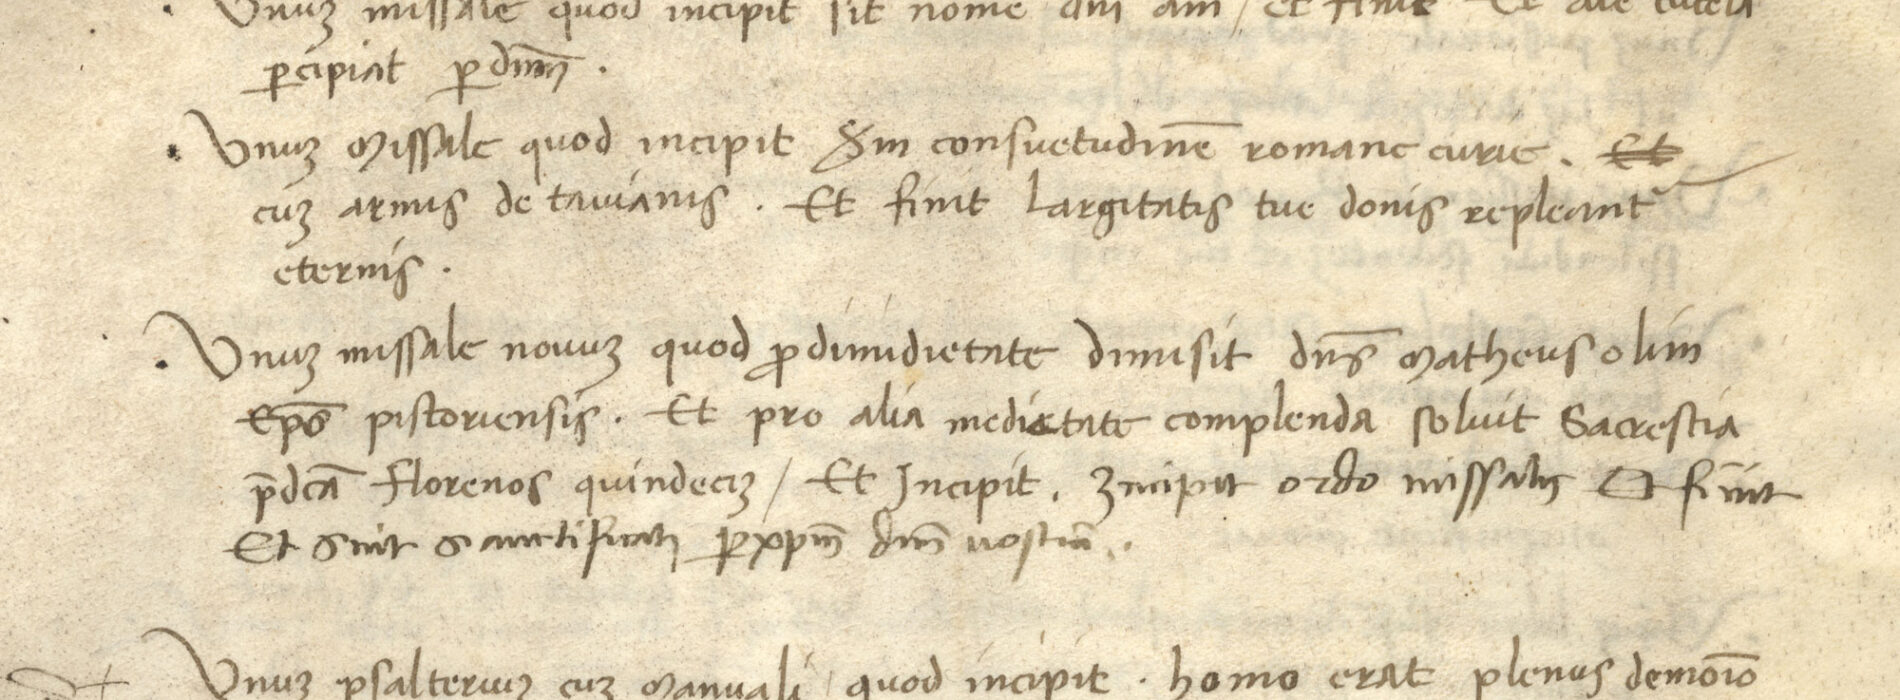 Unuȝ missale quod incipit sit nome dni
ꝑcipiat ꝑ dnm̄ .
. Unuȝ Missale quod incipit Xm consuetudinē romane curie . Et
cuȝ armis de tauianis . Et finit Largitatis tue donis repleant
eternis .
. Unuȝ missale nouuȝ quod ꝓ dimidietate dimisit dn̄s Matheus olim
Ep̄s pistoriensis . Et pro alia medietate complenda soluit Sacrestia
p̄dcā florenos quindeciȝ / Et Incipit . Incipit ordo missalis Et finit
Et sint sanctificati ꝑ xp̄m dn̄m nostrum .
Unuȝ psalteriuȝ cuȝ Manuali / quod incipit . homo erat plenus demoīo